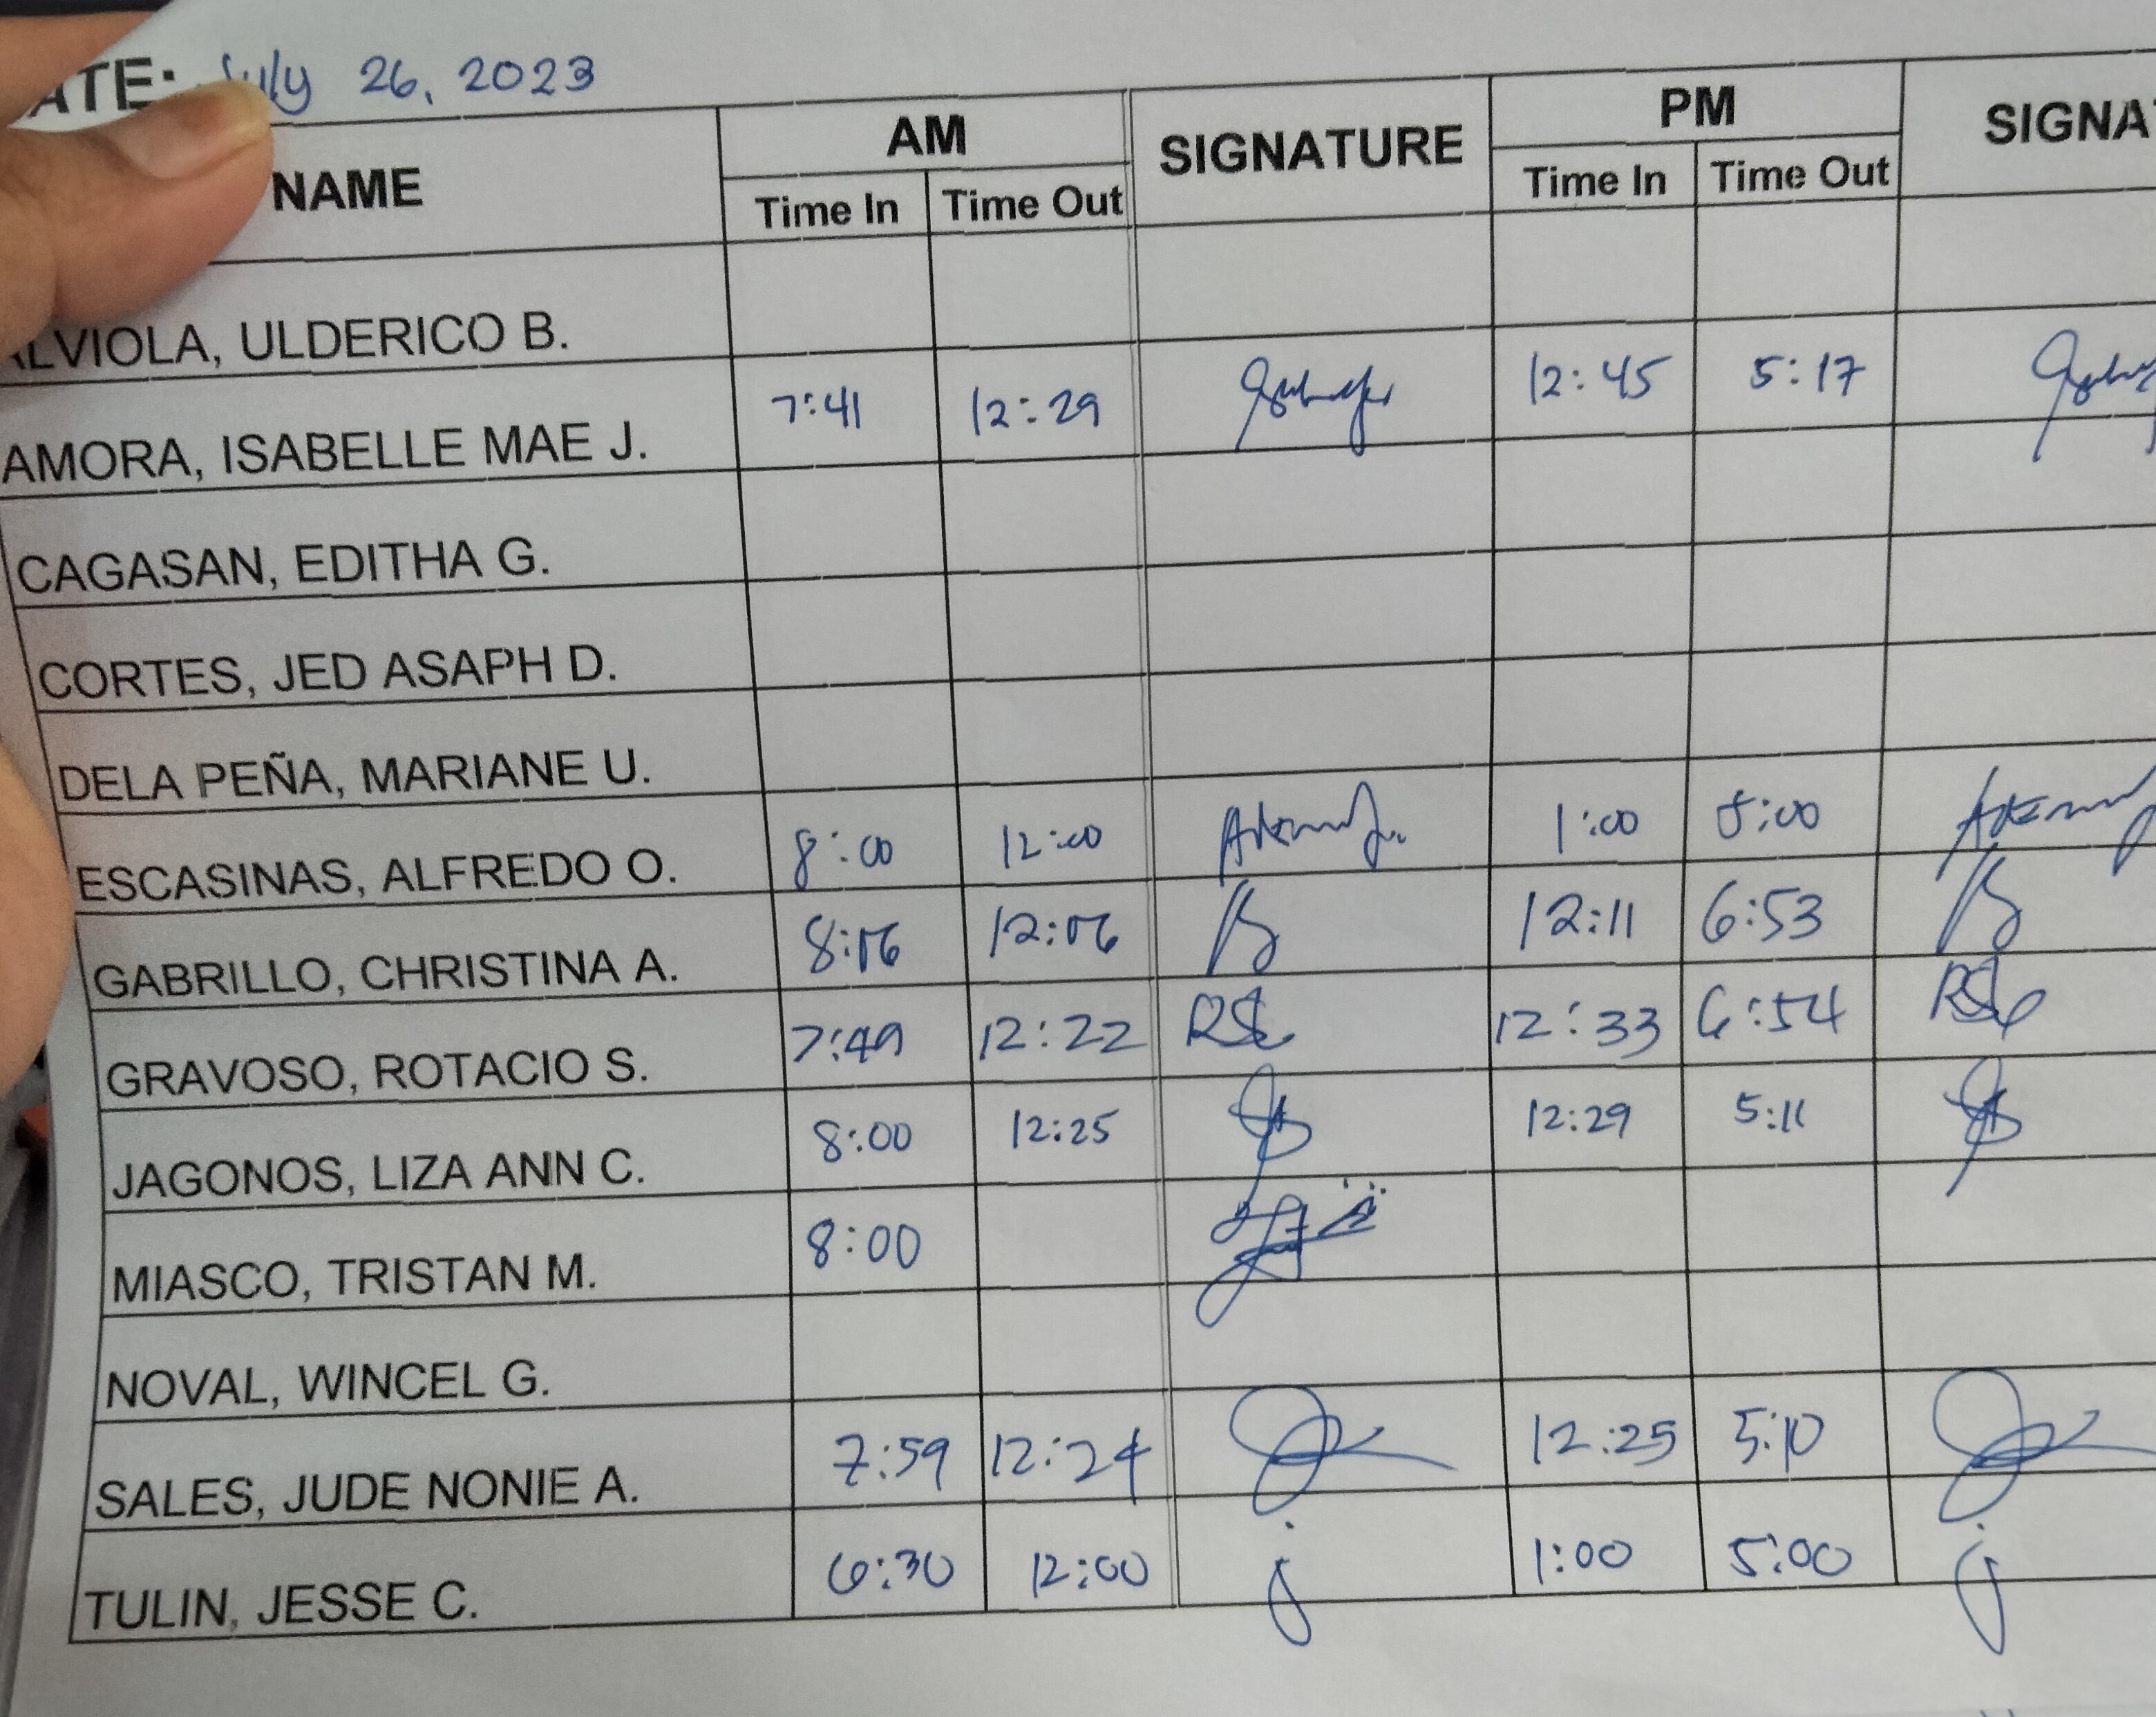 ATE: July 26, 2023
NAME AM SIGNATURE PM SIGNA
Time In Time Out Time In Time Out
ALVIOLA, ULDERICO B.
AMORA, ISABELLE MAE J. 7:41 12:29 12:45 5:17
CAGASAN, EDITHA G.
CORTES, JED ASAPH D.
DELA PEÑA, MARIANE U.
ESCASINAS, ALFREDO O. 8:00 12:00 1:00 5:00
GABRILLO, CHRISTINA A. 8:06 12:06 12:11 6:53
GRAVOSO, ROTACIO S. 7:49 12:22 12:33 6:54
JAGONOS, LIZA ANN C. 8:00 12:25 12:29 5:11
MIASCO, TRISTAN M. 8:00
NOVAL, WINCEL G.
SALES, JUDE NONIE A. 7:59 12:24 12:25 5:10
TULIN, JESSE C. 6:30 12:00 1:00 5:00